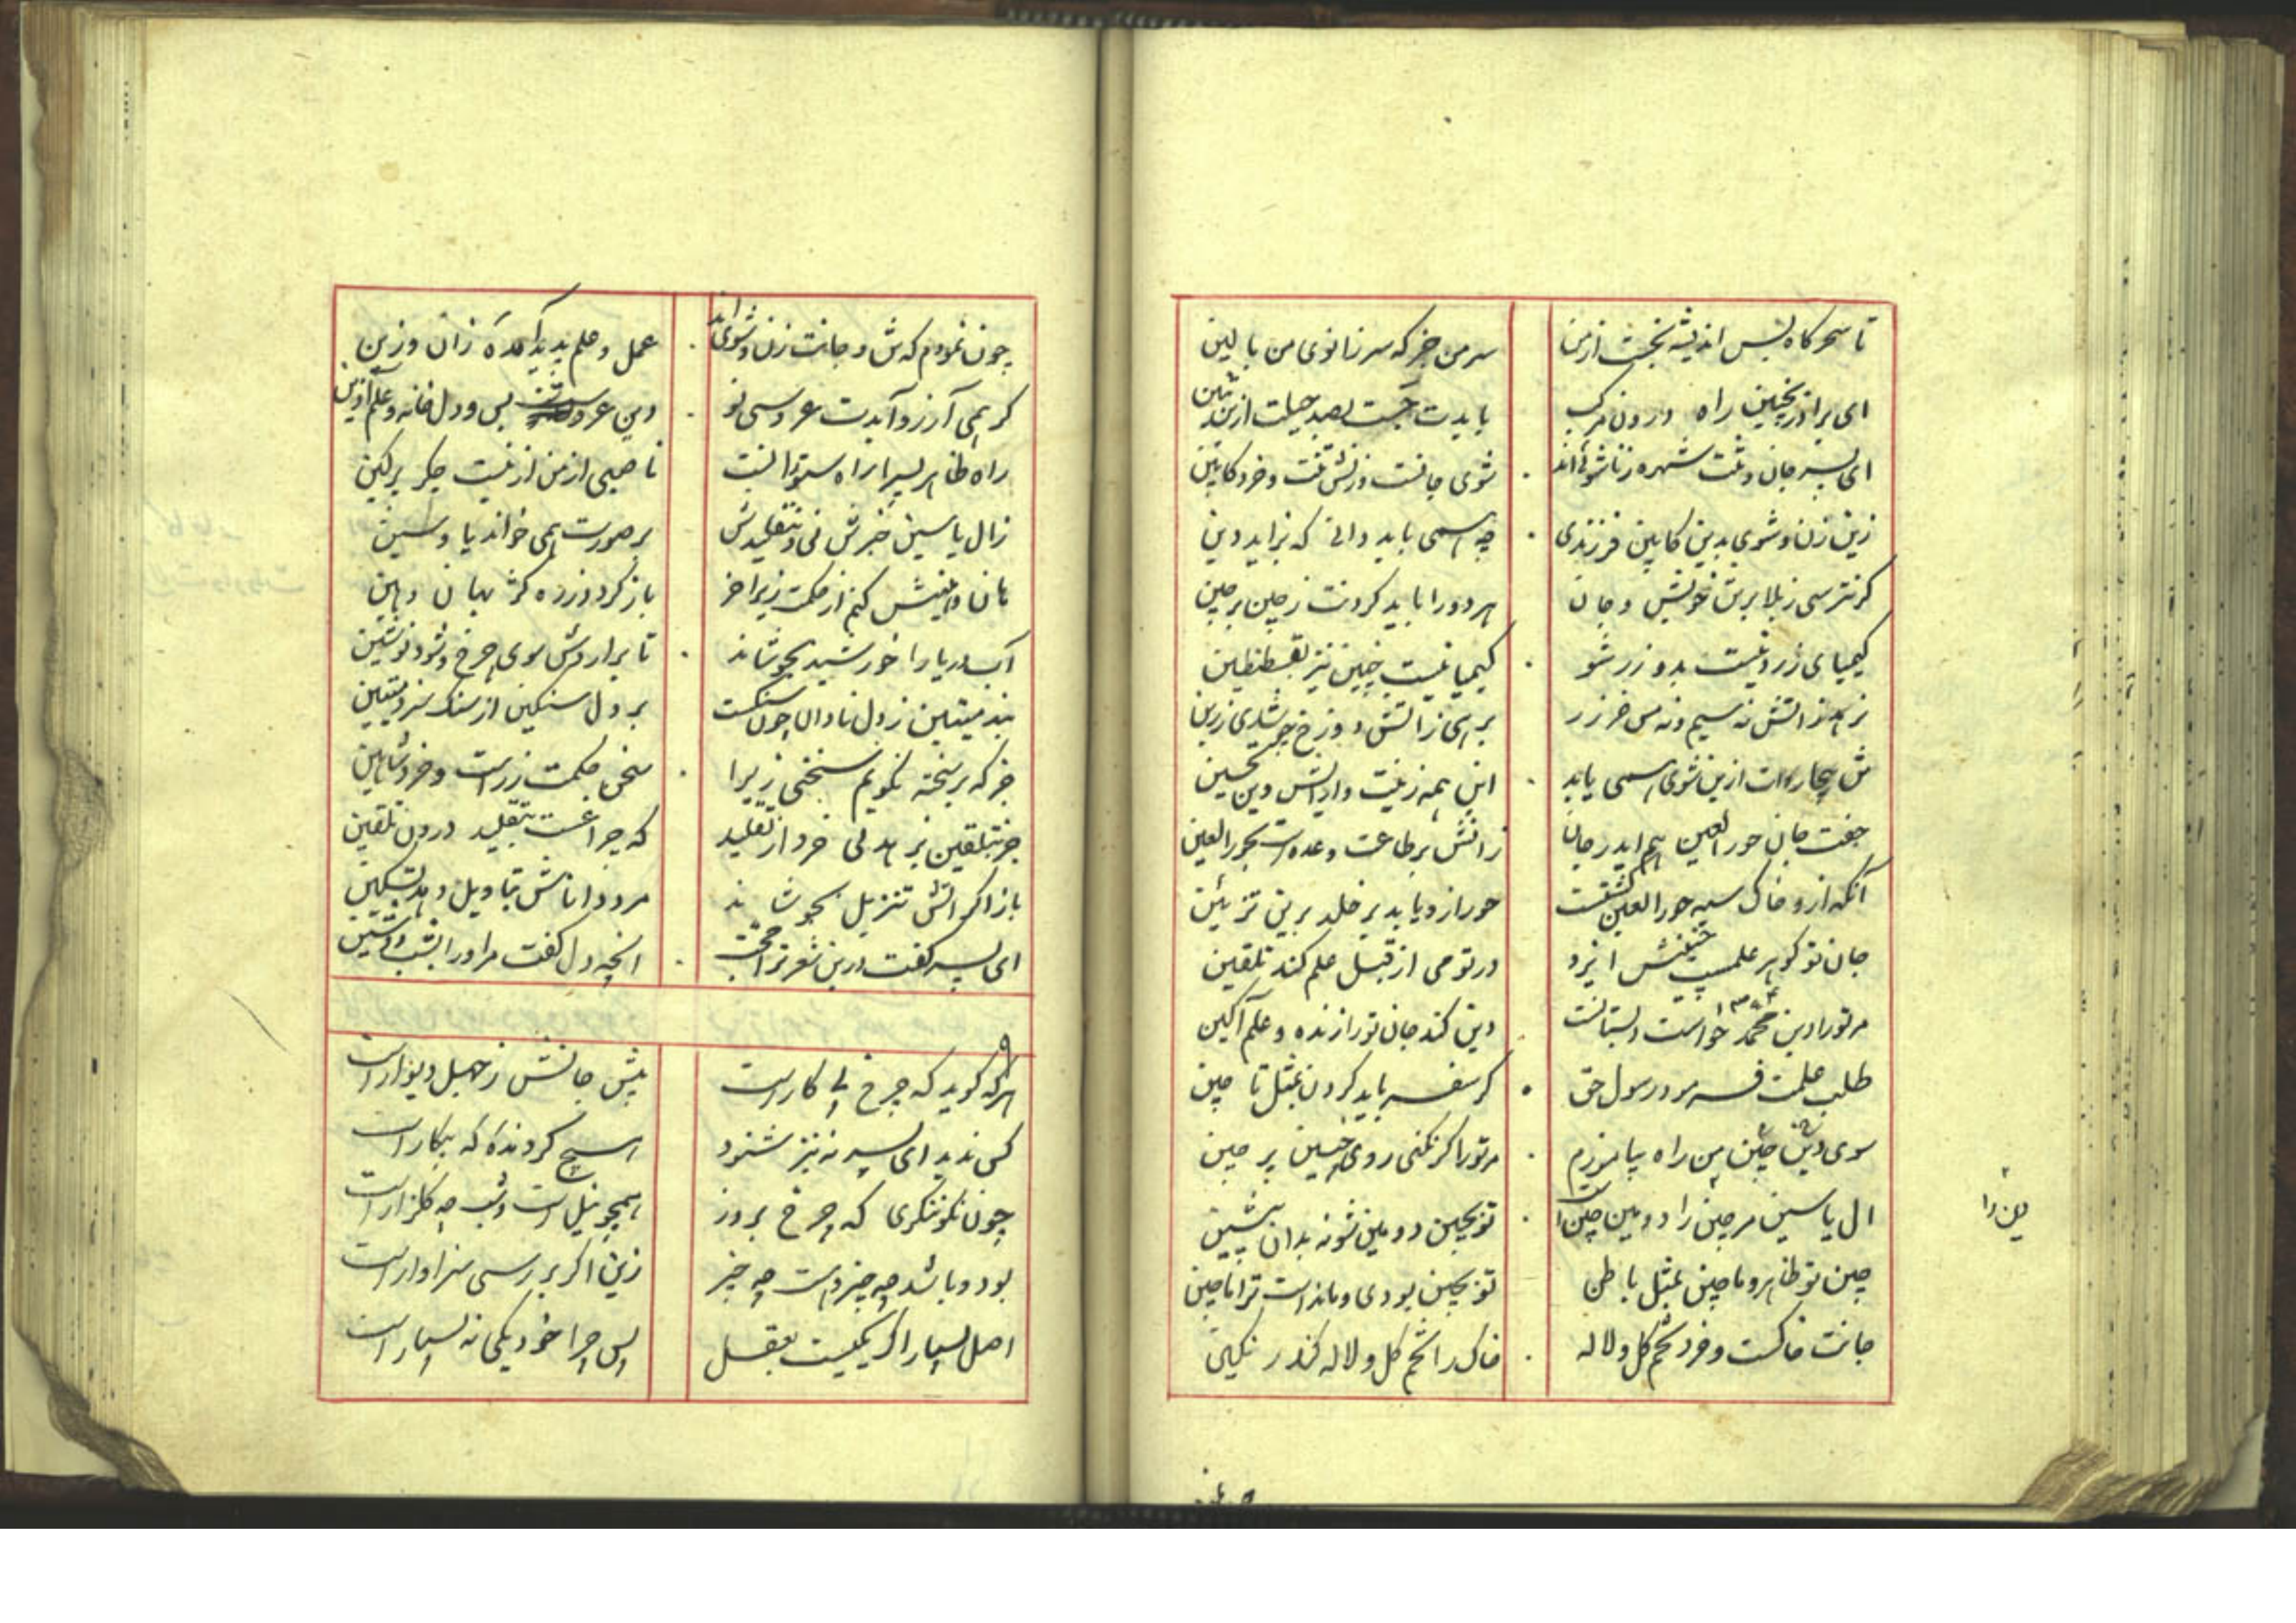 تا سحرکاه ز بس اندیشه نجست از من
سر من جز که سر زانوی من بالین
ای برادر بچنین راه درون مرکب
بایدت جست بصد حیلت ازین
ای پسر جان و تنت شهره زناشوئ‌اند
شوی جانست و زنش تنت و خرد کابین
زین زن و شوی بدین کابین فرزندی
چه همی باید دانی که بزاید دین
کر نترسی ز بلا بر تن خویش و جان
هر دو را باید کردنت ز چین پرچین
کیمیای زر دینست بدو زر شو
کیمیا نیست چنین نیز بقسطنطین
نرهد ز اتش نه سیم و نه مس جز زر
برهی ز اتش دوزخ چو شدی زرین
این همه زینت و ارایش و تحسین
جفت جان حور العین هم اید در جان
زانش بر طاعت وعده است بحور العین
آنکه ازو خاک سیه حور العین کشتست
حور ازو یابد بر خلد برین تزیین
جان تو کوهر علمست ایزد
در تو می از قبل علم کند تلقین
مر تو را دین محمد چو دبستانست
دین کند جان تو را زنده و علم آکین
طلب علمت فرمود رسول حق
کر سفر باید کردن بمثل تا چین
سوی دین چین من راه بیاموزم
مر تو را کر نکنی روی چنین پر چین
ال یاسین مر چین را
تو بچین دومین نشو نه بدان پیشین
چین تو ظاهر و ماچین بمثل باطن
تو بچین بودی و مانداست ترا ماچین
جانت خاکست و خرد تخم کل و لاله
خاک را تخم کل و لاله کند رنکین
چون نمودم که تن و جانت زن و شوی‌اند
عمل و علم پدید آمده زان و زین
کر همی آرزو آیدت عروسی نو
دین عروست بس و دل خانه و علم آذین
راه ظاهر پسرا راه ستورانست
ناصبی از من ازینست جکر پرکین
زال یاسین خبرش نی و بتقلیدش
بر صورت همی خواند یا و سین
نان دینیش کنم از حکمت زیرا خر
باز کردد زره کژ بهان و هین
آب دریا را خورشید بجوشاند
تا برآردش سوی چرخ و شود نوشین
پند میتین ز دل نادان چون سنکست
بر دل سنکین از سنک سزد میتین
جز که بر سخته نکویم سخنی زیرا
سخن حکمت زر است و خرد شاهین
جز بتلقین نرهد نی خرد از تقلید
که چراغست بتقلید درون تلقین
باز اکر اتش تنزیل بجوشاند
مرد داناش بتاویل دهد تسکین
ای پسر کفت درین شعر ترا حجت
انچه دل کفت مر او را بشب دوشین
هر که کوید که چرخ بی کار است
پیش جانش ز جهل دیوار است
کس ندید ای پسر نه نیز شنود
هیچ کردنده که بیکار است
چون نکو ننکری که چرخ بروز
همچو نیل است و شب چه کلزار است
بود و باشد چه چیز و هست چه چیز
زین اکر بررسی سزاوار است
اصل بسیار اکر یکیست بعقل
پس چرا خود یکی نه بسیار است